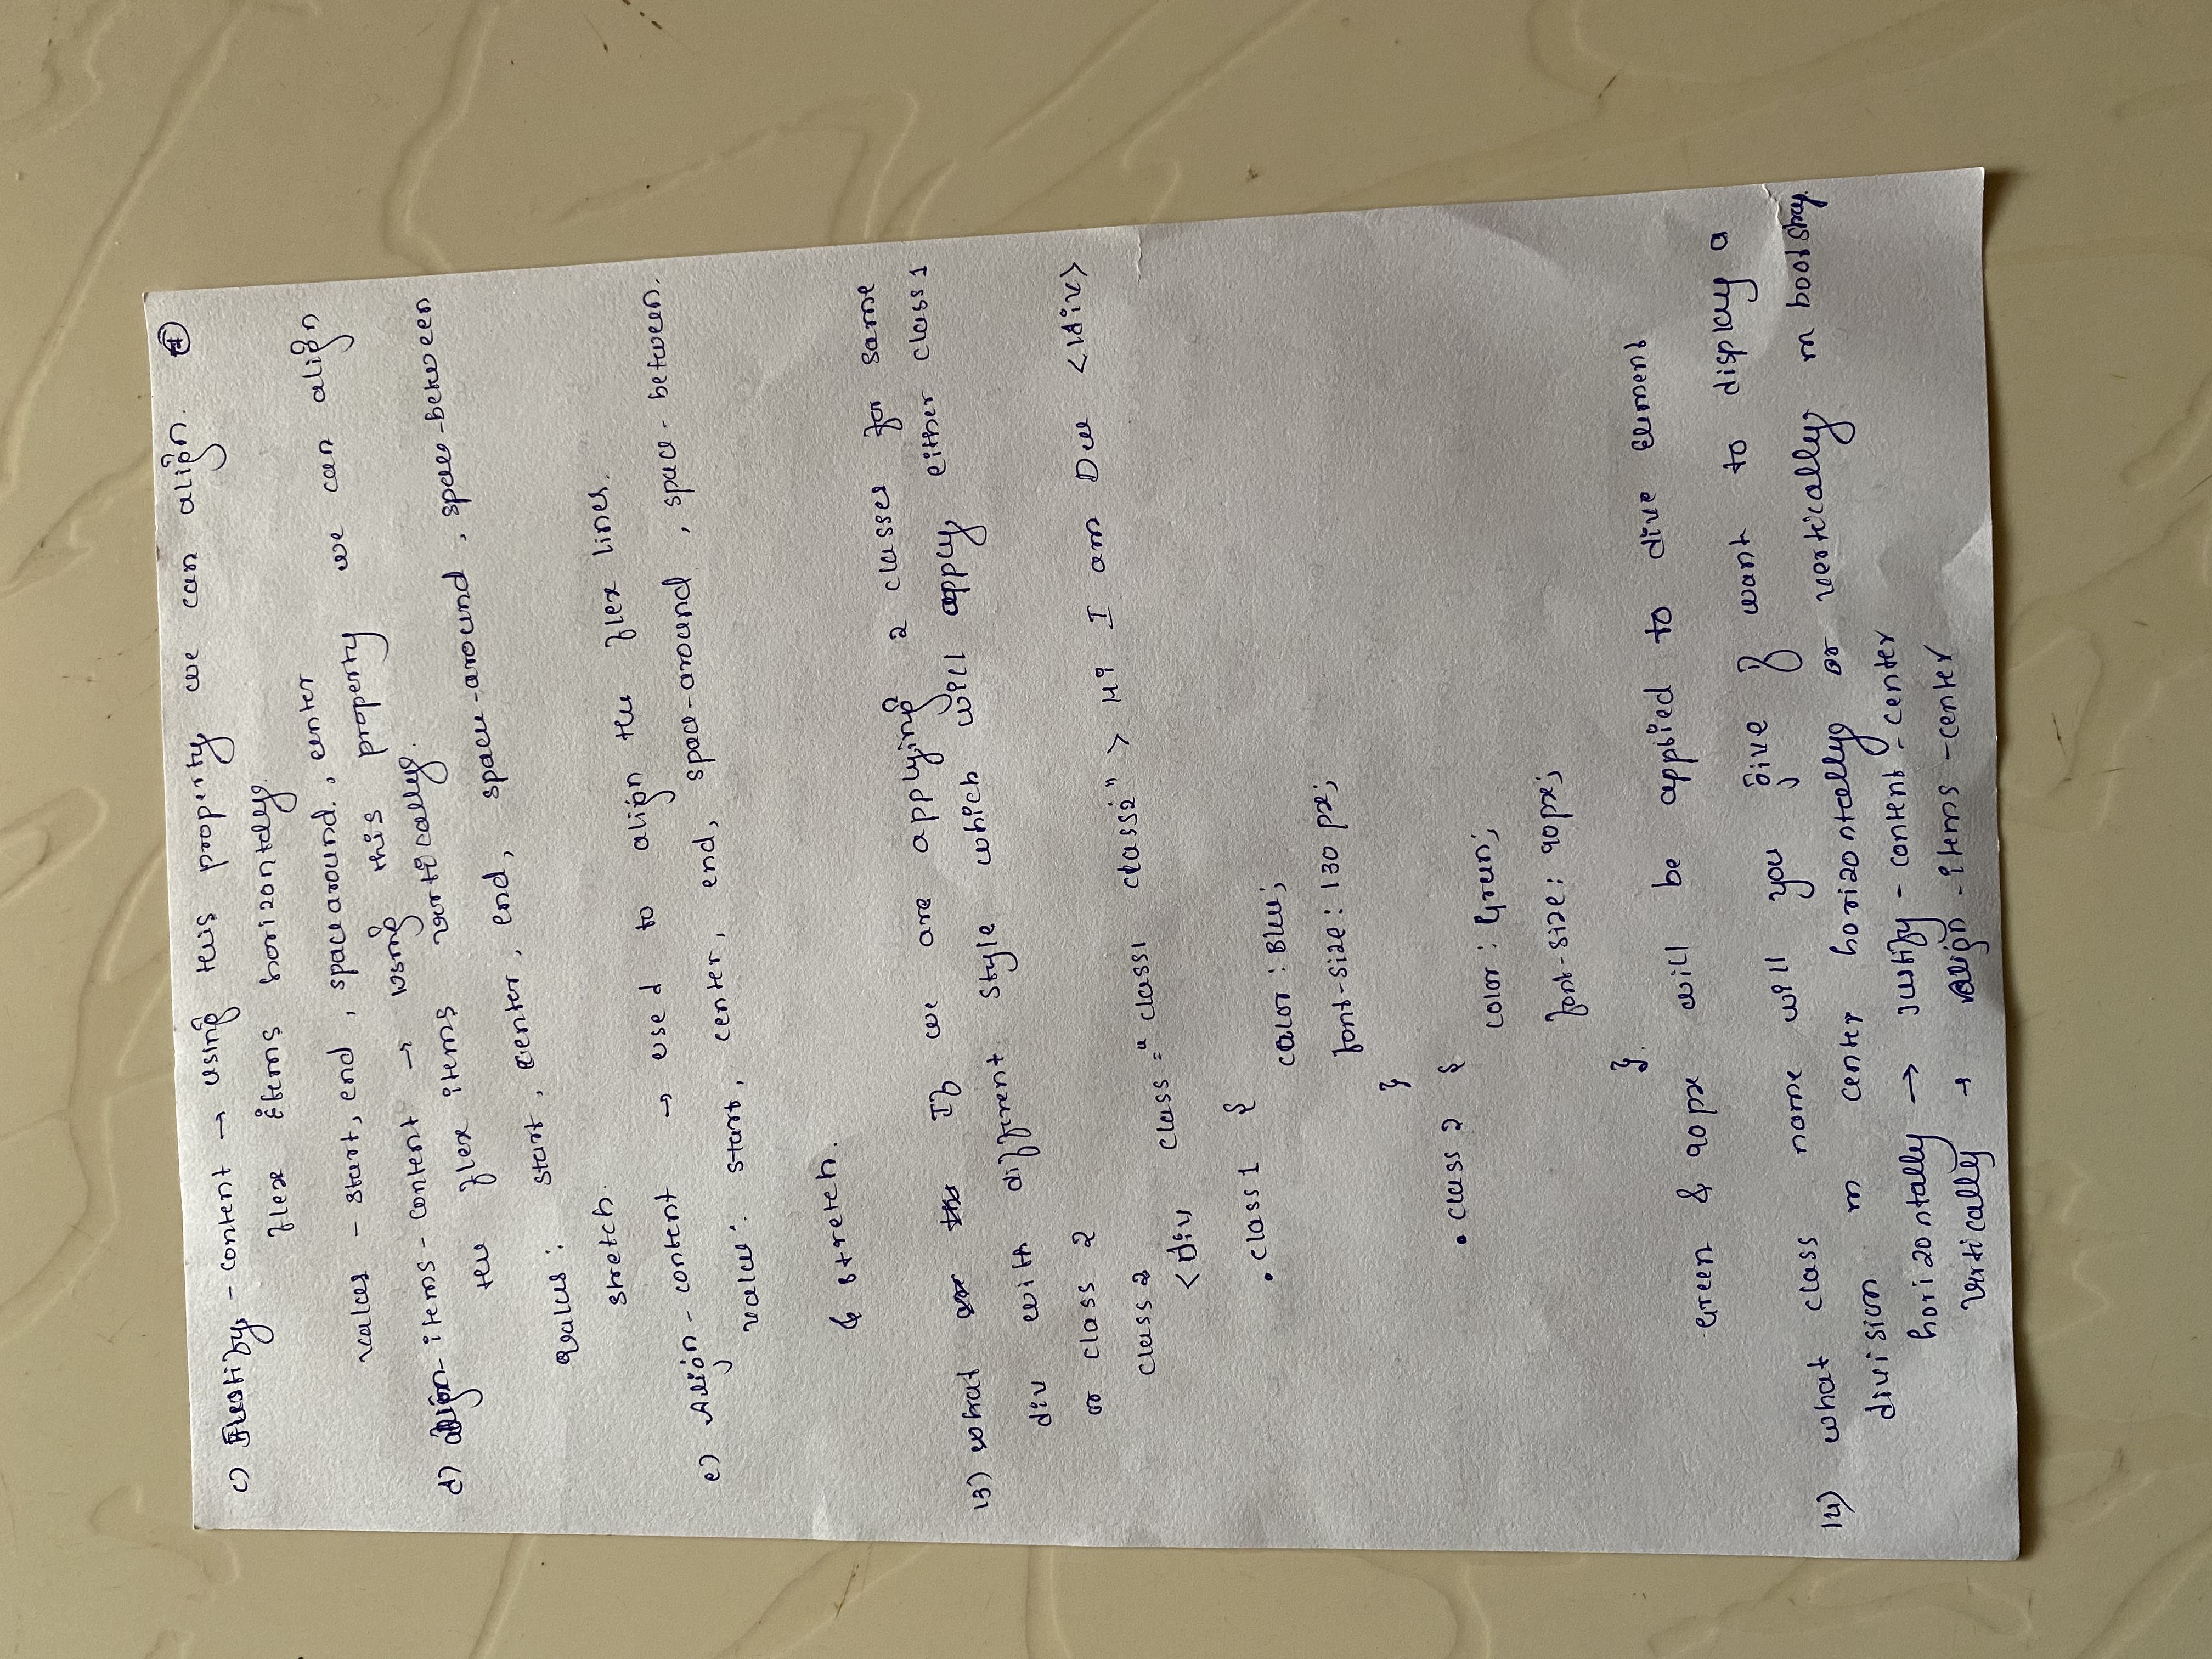 c) Justify - content → using this property we can align.
flex items horizontaly.
values - start, end, spacearound., center
d) align-items-content → using this property we can align
the flex items vertically.
values: start, center, end, space-around, space-between
stretch.
e) Align-content → used to align the flex lines.
value: start, center, end, space-around, space-between.
& stretch.
13) what If we are applying 2 classes for same
div with different style which will apply either class 1
or class 2
class 2
<div class="class1 class2"> Hi I am </div>
.class 1 {
color: Blue;
font-size: 130 px;
}
.class 2 {
color: Green;
font-size: 90px;
}.
Green & 90px will be applied to dive element
14) what class name will you give if want to display a
division in center horizontally or vertically in
horizontally → justify-content-center
vertically → align-items-center